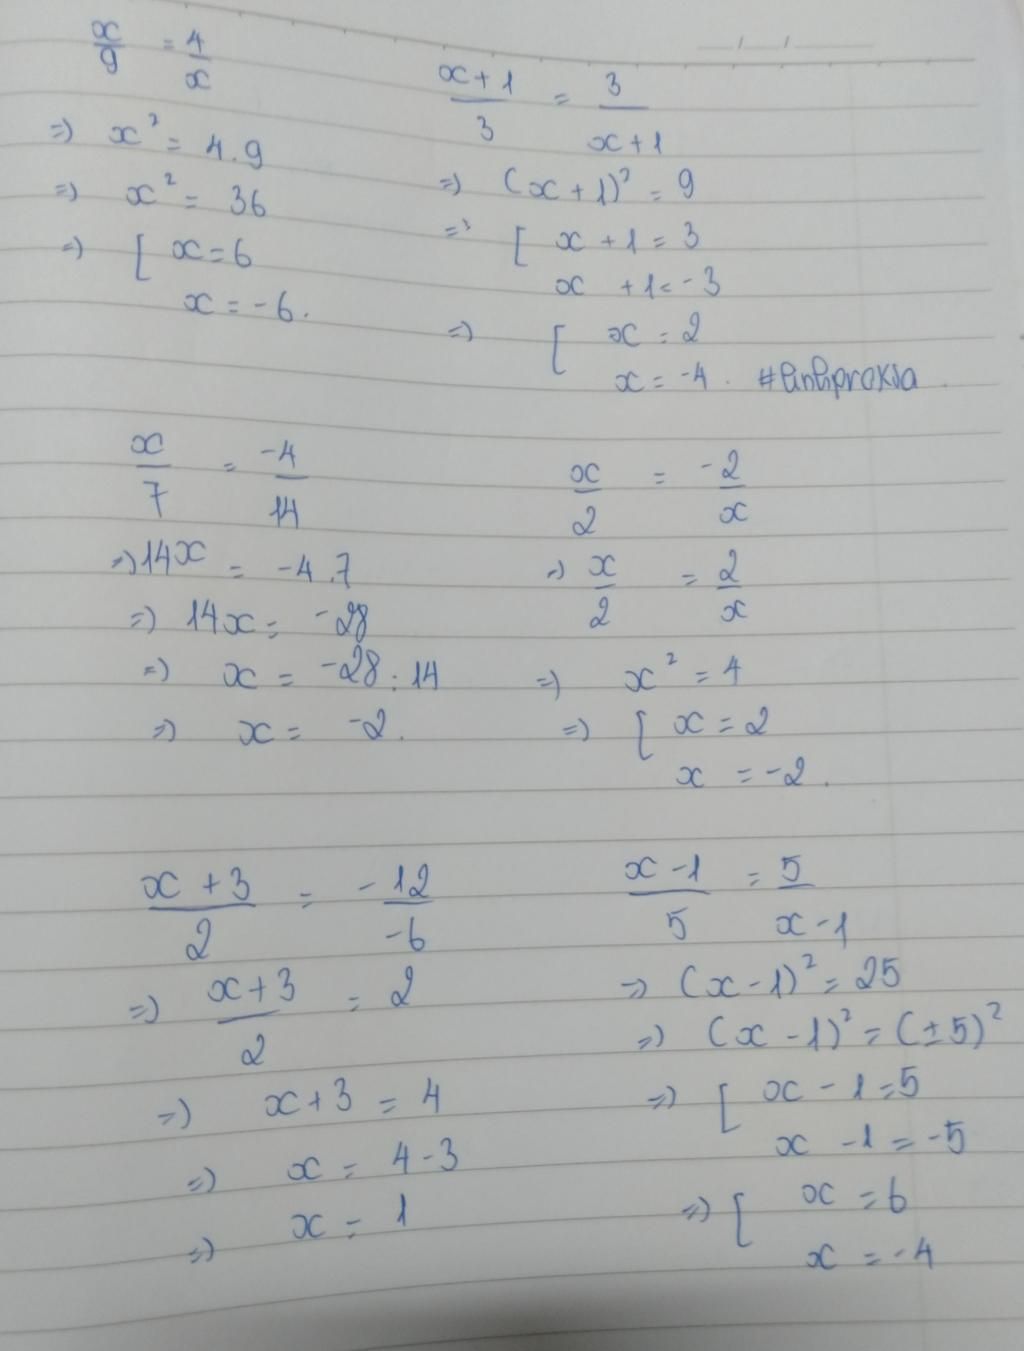 x/9 = 4/x
=> x² = 4.9
=> x² = 36
=> [ x = 6
x = -6.
x+1/3 = 3/x+1
=> (x+1)² = 9
=> [ x+1 = 3
x+1 = -3
=> [ x = 2
x = -4.
x/7 = -4/14
=> 14x = -4.7
=> 14x = -28
=> x = -28:14
=> x = -2.
x/2 = -2/x
=> x/2 = 2/x
=> x² = 4
=> [ x = 2
x = -2.
x+3/2 = -12/-6
=> x+3/2 = 2
=> x+3 = 4
=> x = 4-3
=> x = 1
x-1/5 = 5/x-1
=> (x-1)² = 25
=> (x-1)² = (±5)²
=> [ x-1 = 5
x-1 = -5
=> [ x = 6
x = -4